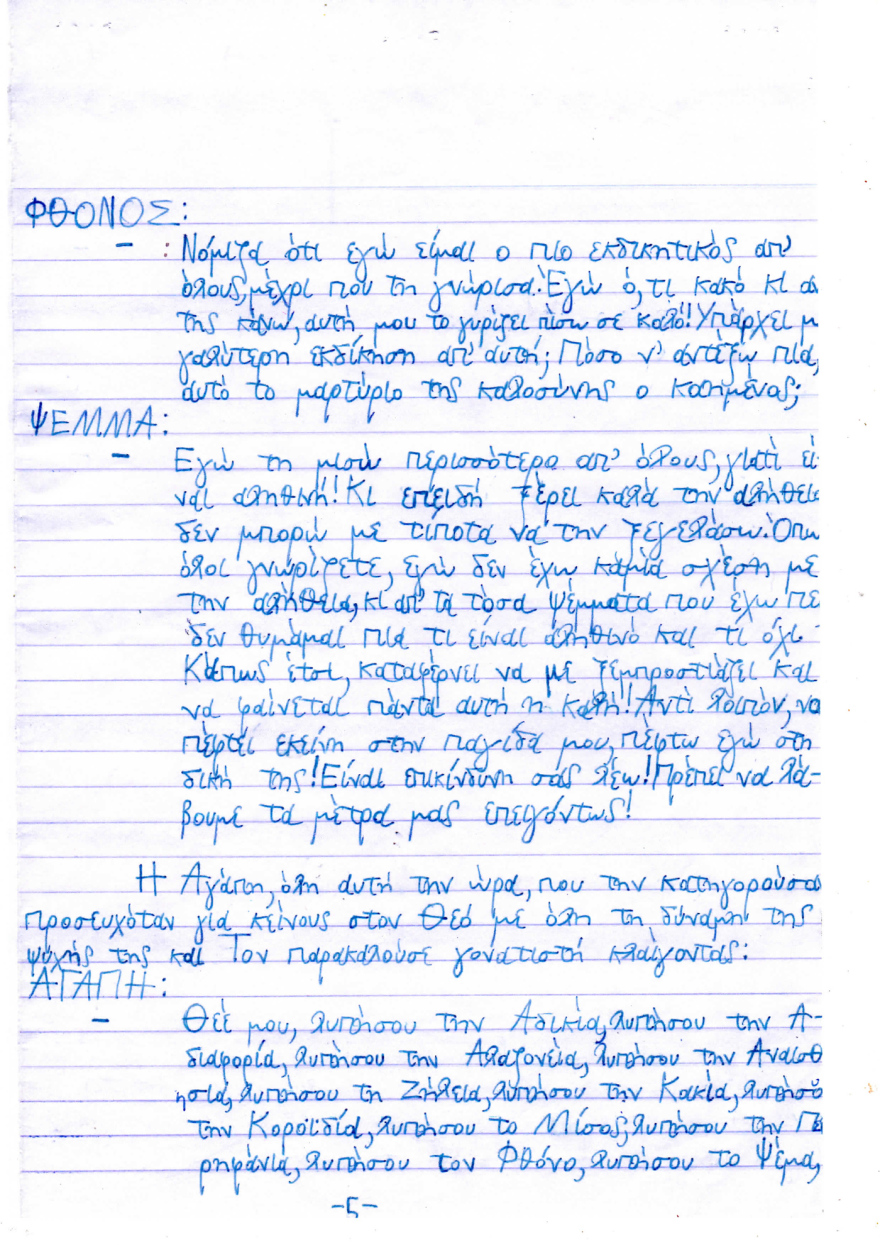 ΦΘΟΝΟΣ:
– : Νόμιζα ότι εγώ είμαι ο πιο εκδικητικός απ'
όλους, μέχρι που τη γνώρισα. Εγώ ό,τι κακό κι αν
της κάνω, αυτή μου το γυρίζει πίσω σε καλό! Υπάρχει μ
γαλύτερη εκδίκηση απ' αυτή; Πόσο ν' αντέξω πια,
αυτό το μαρτύριο της καλοσύνης ο καημένος;
ΨΕΜΜΑ:
– Εγώ τη μισώ περισσότερο απ' όλους, γιατί εί-
ναι αληθινή! Κι επειδή ξέρει καλά την αλήθεια
δεν μπορώ με τίποτα να την ξεγελάσω. Όπω
όλοι γνωρίζετε, εγώ δεν έχω καμία σχέση με
την αλήθεια, κι απ' τα τόσα ψέμματα που έχω πε
δεν θυμάμαι πια τι είναι αληθινό και τί όχι.
Κάπως έτσι, καταφέρνει να με ξεμπροστιάζει και
να φαίνεται πάντα αυτή η καλή! Αντί λοιπόν, να
πέφτει εκείνη στην παγίδα μου, πέφτω εγώ στη
δική της! Είναι επικίνδυνη σας λέω! Πρέπει να λά-
βουμε τα μέτρα μας επειγόντως!
Η Αγάπη, όλη αυτή την ώρα, που την κατηγορούσα
προσευχόταν για κείνους στον Θεό με όλη τη δύναμη της
ψυχής της και Τον παρακαλούσε γονατιστή κλαίγοντας:
ΑΓΑΠΗ:
– Θεέ μου, λυπήσου την Αδικία, λυπήσου την Α-
διαφορία, λυπήσου την Αλαζονεία, λυπήσου την Αναισθ
ησία, λυπήσου τη Ζήλεια, λυπήσου την Κακία, λυπήσου
την Κοροϊδία, λυπήσου το Μίσος, λυπήσου την Πε
ρηφάνια, λυπήσου τον Φθόνο, λυπήσου το Ψέμα,
-5-